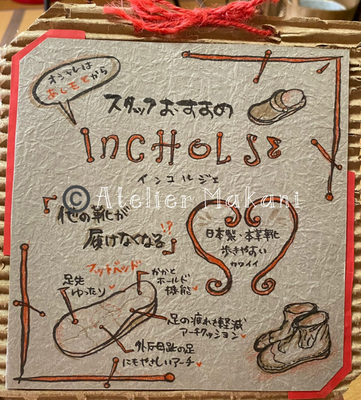 オシャレは
あしもとから
スタッフおすすめ
INCHOLJE
インコルジェ
© Atelier Makani
『他の靴が
履けなくなる』!?
日本製・本革靴
歩きやすい
カワイイ
フットバンド
足先
ゆったり
かかと
ホールド
機能
足の疲れ軽減
アーチクッション
外反母趾の足
にもやさしいアーチ